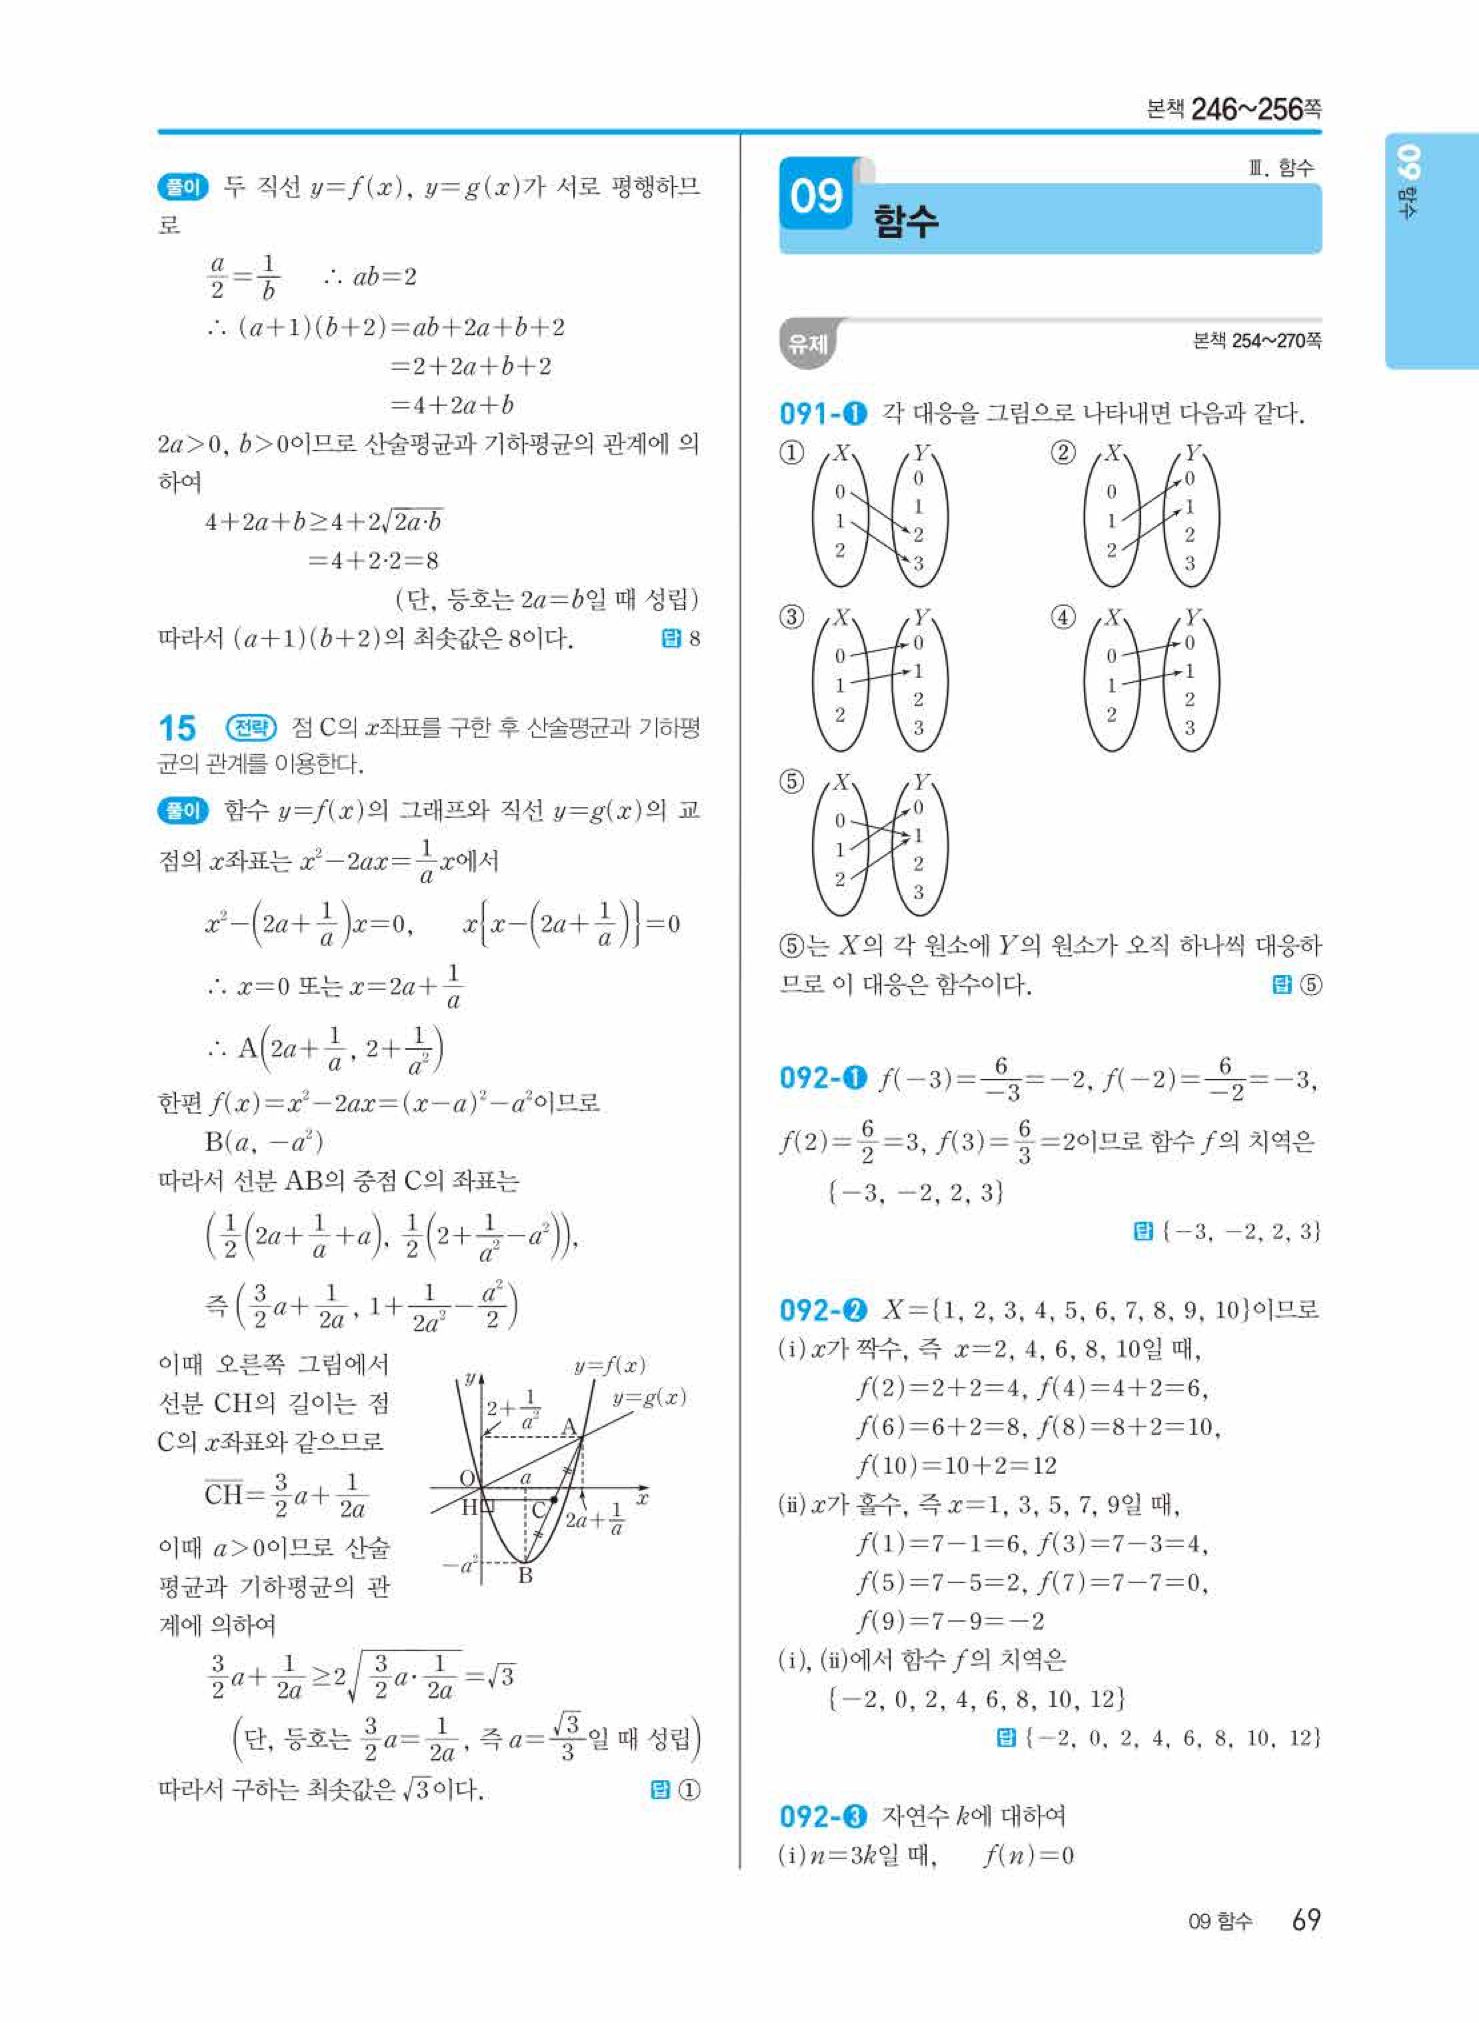 본책 246~256쪽
풀이 두 직선 y=f(x), y=g(x)가 서로 평행하므
로
a/2=1/b ∴ ab=2
∴ (a+1)(b+2)=ab+2a+b+2
=2+2a+b+2
=4+2a+b
2a>0, b>0이므로 산술평균과 기하평균의 관계에 의
하여
4+2a+b≥4+2√(2a·b)
=4+2·2=8
(단, 등호는 2a=b일 때 성립)
따라서 (a+1)(b+2)의 최솟값은 8이다. 답 8
15 전략 점 C의 x좌표를 구한 후 산술평균과 기하평
균의 관계를 이용한다.
풀이 함수 y=f(x)의 그래프와 직선 y=g(x)의 교
점의 x좌표는 x²-2ax=1/a x에서
x²-(2a+1/a)x=0, x{x-(2a+1/a)}=0
∴ x=0 또는 x=2a+1/a
∴ A(2a+1/a, 2+1/a²)
한편 f(x)=x²-2ax=(x-a)²-a²이므로
B(a, -a²)
따라서 선분 AB의 중점 C의 좌표는
(1/2(2a+1/a+a), 1/2(2+1/a²-a²)),
즉 (3/2 a+1/2a, 1+1/2a²-a²/2)
이때 오른쪽 그림에서
선분 CH의 길이는 점
C의 x좌표와 같으므로
CH=3/2 a+1/2a
이때 a>0이므로 산술
평균과 기하평균의 관
계에 의하여
y y=f(x)
2+1/a² y=g(x)
A
O a x
H C 2a+1/a
-a² B
3/2 a+1/2a≥2√(3/2 a·1/2a)=√3
(단, 등호는 3/2 a=1/2a, 즉 a=√3/3일 때 성립)
따라서 구하는 최솟값은 √3이다. 답 ①
Ⅲ. 함수
09 함수
유제 본책 254~270쪽
091-❶ 각 대응을 그림으로 나타내면 다음과 같다.
① X Y ② X Y
0 1 2 0 1 2 3 0 1 2 0 1 2 3
③ X Y ④ X Y
0 1 2 0 1 2 3 0 1 2 0 1 2 3
⑤ X Y
0 1 2 0 1 2 3
⑤는 X의 각 원소에 Y의 원소가 오직 하나씩 대응하
므로 이 대응은 함수이다. 답 ⑤
092-❶ f(-3)=6/-3=-2, f(-2)=6/-2=-3,
f(2)=6/2=3, f(3)=6/3=2이므로 함수 f의 치역은
{-3, -2, 2, 3}
답 {-3, -2, 2, 3}
092-❷ X={1, 2, 3, 4, 5, 6, 7, 8, 9, 10}이므로
(i) x가 짝수, 즉 x=2, 4, 6, 8, 10일 때,
f(2)=2+2=4, f(4)=4+2=6,
f(6)=6+2=8, f(8)=8+2=10,
f(10)=10+2=12
(ii) x가 홀수, 즉 x=1, 3, 5, 7, 9일 때,
f(1)=7-1=6, f(3)=7-3=4,
f(5)=7-5=2, f(7)=7-7=0,
f(9)=7-9=-2
(i), (ii)에서 함수 f의 치역은
{-2, 0, 2, 4, 6, 8, 10, 12}
답 {-2, 0, 2, 4, 6, 8, 10, 12}
092-❸ 자연수 k에 대하여
(i) n=3k일 때, f(n)=0
09 함수
09 함수 69